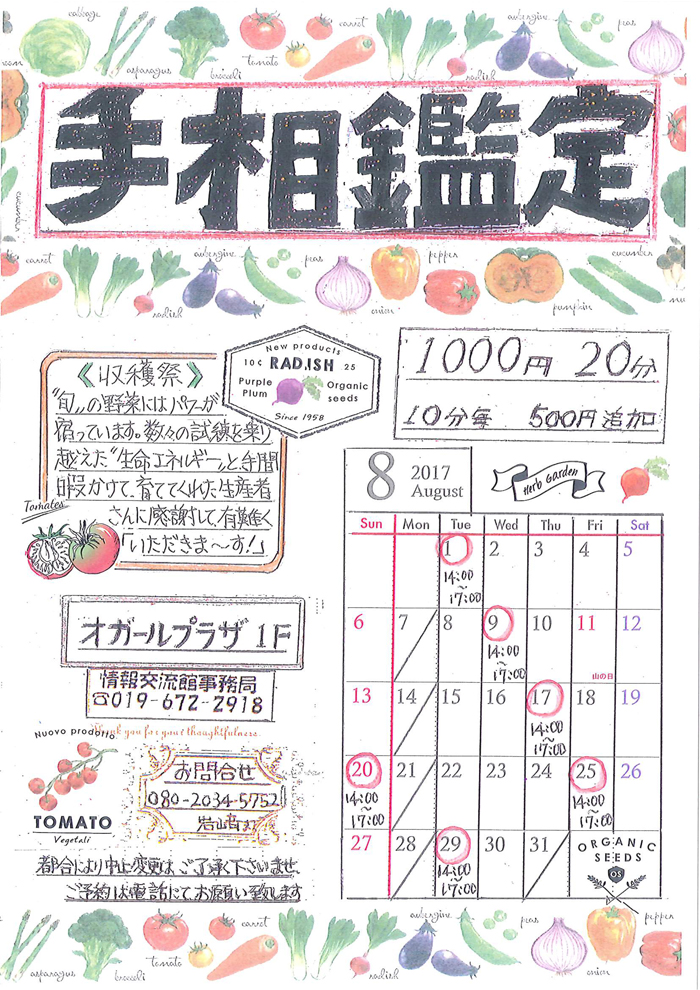 cabbage
asparagus
broccoli
tomato
carrot
radish
aubergine
peas
手相鑑定
cucumber
carrot
radish
aubergine
peas
onion
pepper
pumpkin
cucumber
《収穫祭》
"旬"の野菜にはパワーが
宿っています。数々の試練を乗り
越えた"生命エネルギー"と、手間
暇かけて、育ててくれた生産者
さんに感謝して、有難く
「いただきま〜す!」
Tomatoes
New products
10¢ RADISH 25
Purple Plum
Organic seeds
Since 1958
1000円 20分
10分毎 500円追加
8 2017 August
Herb Garden
Sun Mon Tue Wed Thu Fri Sat
1 2 3 4 5
14:00
〜
17:00
6 7 8 9 10 11 12
14:00
〜
17:00
山の日
13 14 15 16 17 18 19
14:00
〜
17:00
20 21 22 23 24 25 26
14:00
〜
17:00
14:00
〜
17:00
27 28 29 30 31
14:00
〜
17:00
ORGANIC
SEEDS
OS
オガールプラザ 1F
情報交流館事務局
☎019-672-2918
Thank you for your thoughtfulness.
Nuovo prodotto
TOMATO
Vegetali
お問合せ
080-2034-5752
岩崎まで
都合により中止、変更は、ご了承下さいませ
ご予約は電話にて、お願い致します
asparagus
broccoli
tomato
carrot
radish
aubergine
peas
onion
pepper